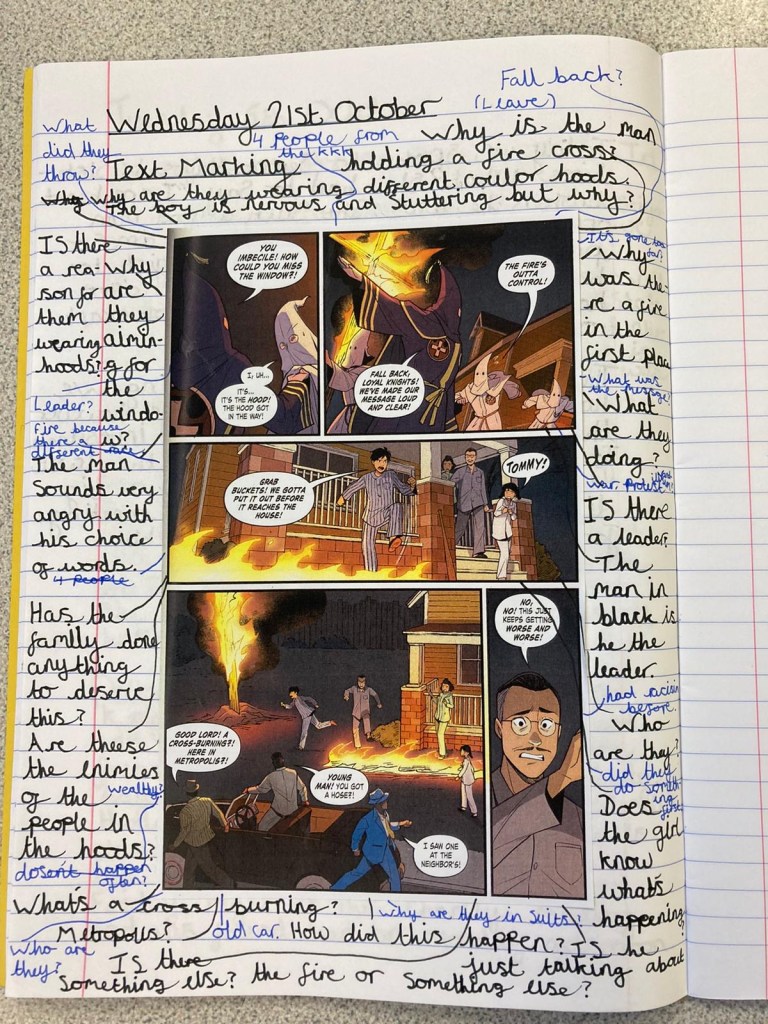 Fall back?
(Leave)
Wednesday 21st October
What
did they
throw?
4 people from
the KKK
Why is the man
holding a fire cross?
Text Marking
Why are they wearing different coulor hoods.
The boy is nervous and stuttering but why?
Is there
a rea-
son for
them
wearing
hoods?
Why
are
they
aimin-
g for
the
windo-
w?
Leader?
Fire because
there a
different race
The man
Sounds very
angry with
his choice
of words.
4 people
Has the
familly done
anything
to deserve
this?
Are theese
the enimies
of the
wealthy?
people in
the hoods?
dosen't happen
often?
YOU
IMBECILE! HOW
COULD YOU MISS
THE WINDOW?!
I, UH...
IT'S...
IT'S THE HOOD!
THE HOOD GOT
IN THE WAY!
THE FIRE'S
OUTTA
CONTROL!
FALL BACK,
LOYAL KNIGHTS!
WE'VE MADE OUR
MESSAGE LOUD
AND CLEAR!
GRAB
BUCKETS! WE GOTTA
PUT IT OUT BEFORE
IT REACHES THE
HOUSE!
TOMMY!
GOOD LORD! A
CROSS-BURNING?!
HERE IN
METROPOLIS?!
YOUNG
MAN! YOU GOT
A HOSE?!
I SAW ONE
AT THE
NEIGHBOR'S!
NO,
NO! THIS JUST
KEEPS GETTING
WORSE AND
WORSE!
It's gone too
far.
Why
was the-
re a fire
in the
first place
What was
the message?
What
are they
doing?
war. Protest
Is there
a leader?
The
man in
black is
he the
leader.
had racism
before.
Who
are they?
did they
do someth-
ing
first?
Does
the girl
know
what's
happening?
What's a cross burning?
Why are they in suits?
Metropolis?
old car.
How did this happen?
Who are
they?
Is he
just talking about
the fire or something else?
Is there
something else?